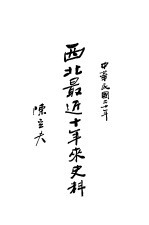 中華民國三十年
西北最近十年來史料
陳立夫